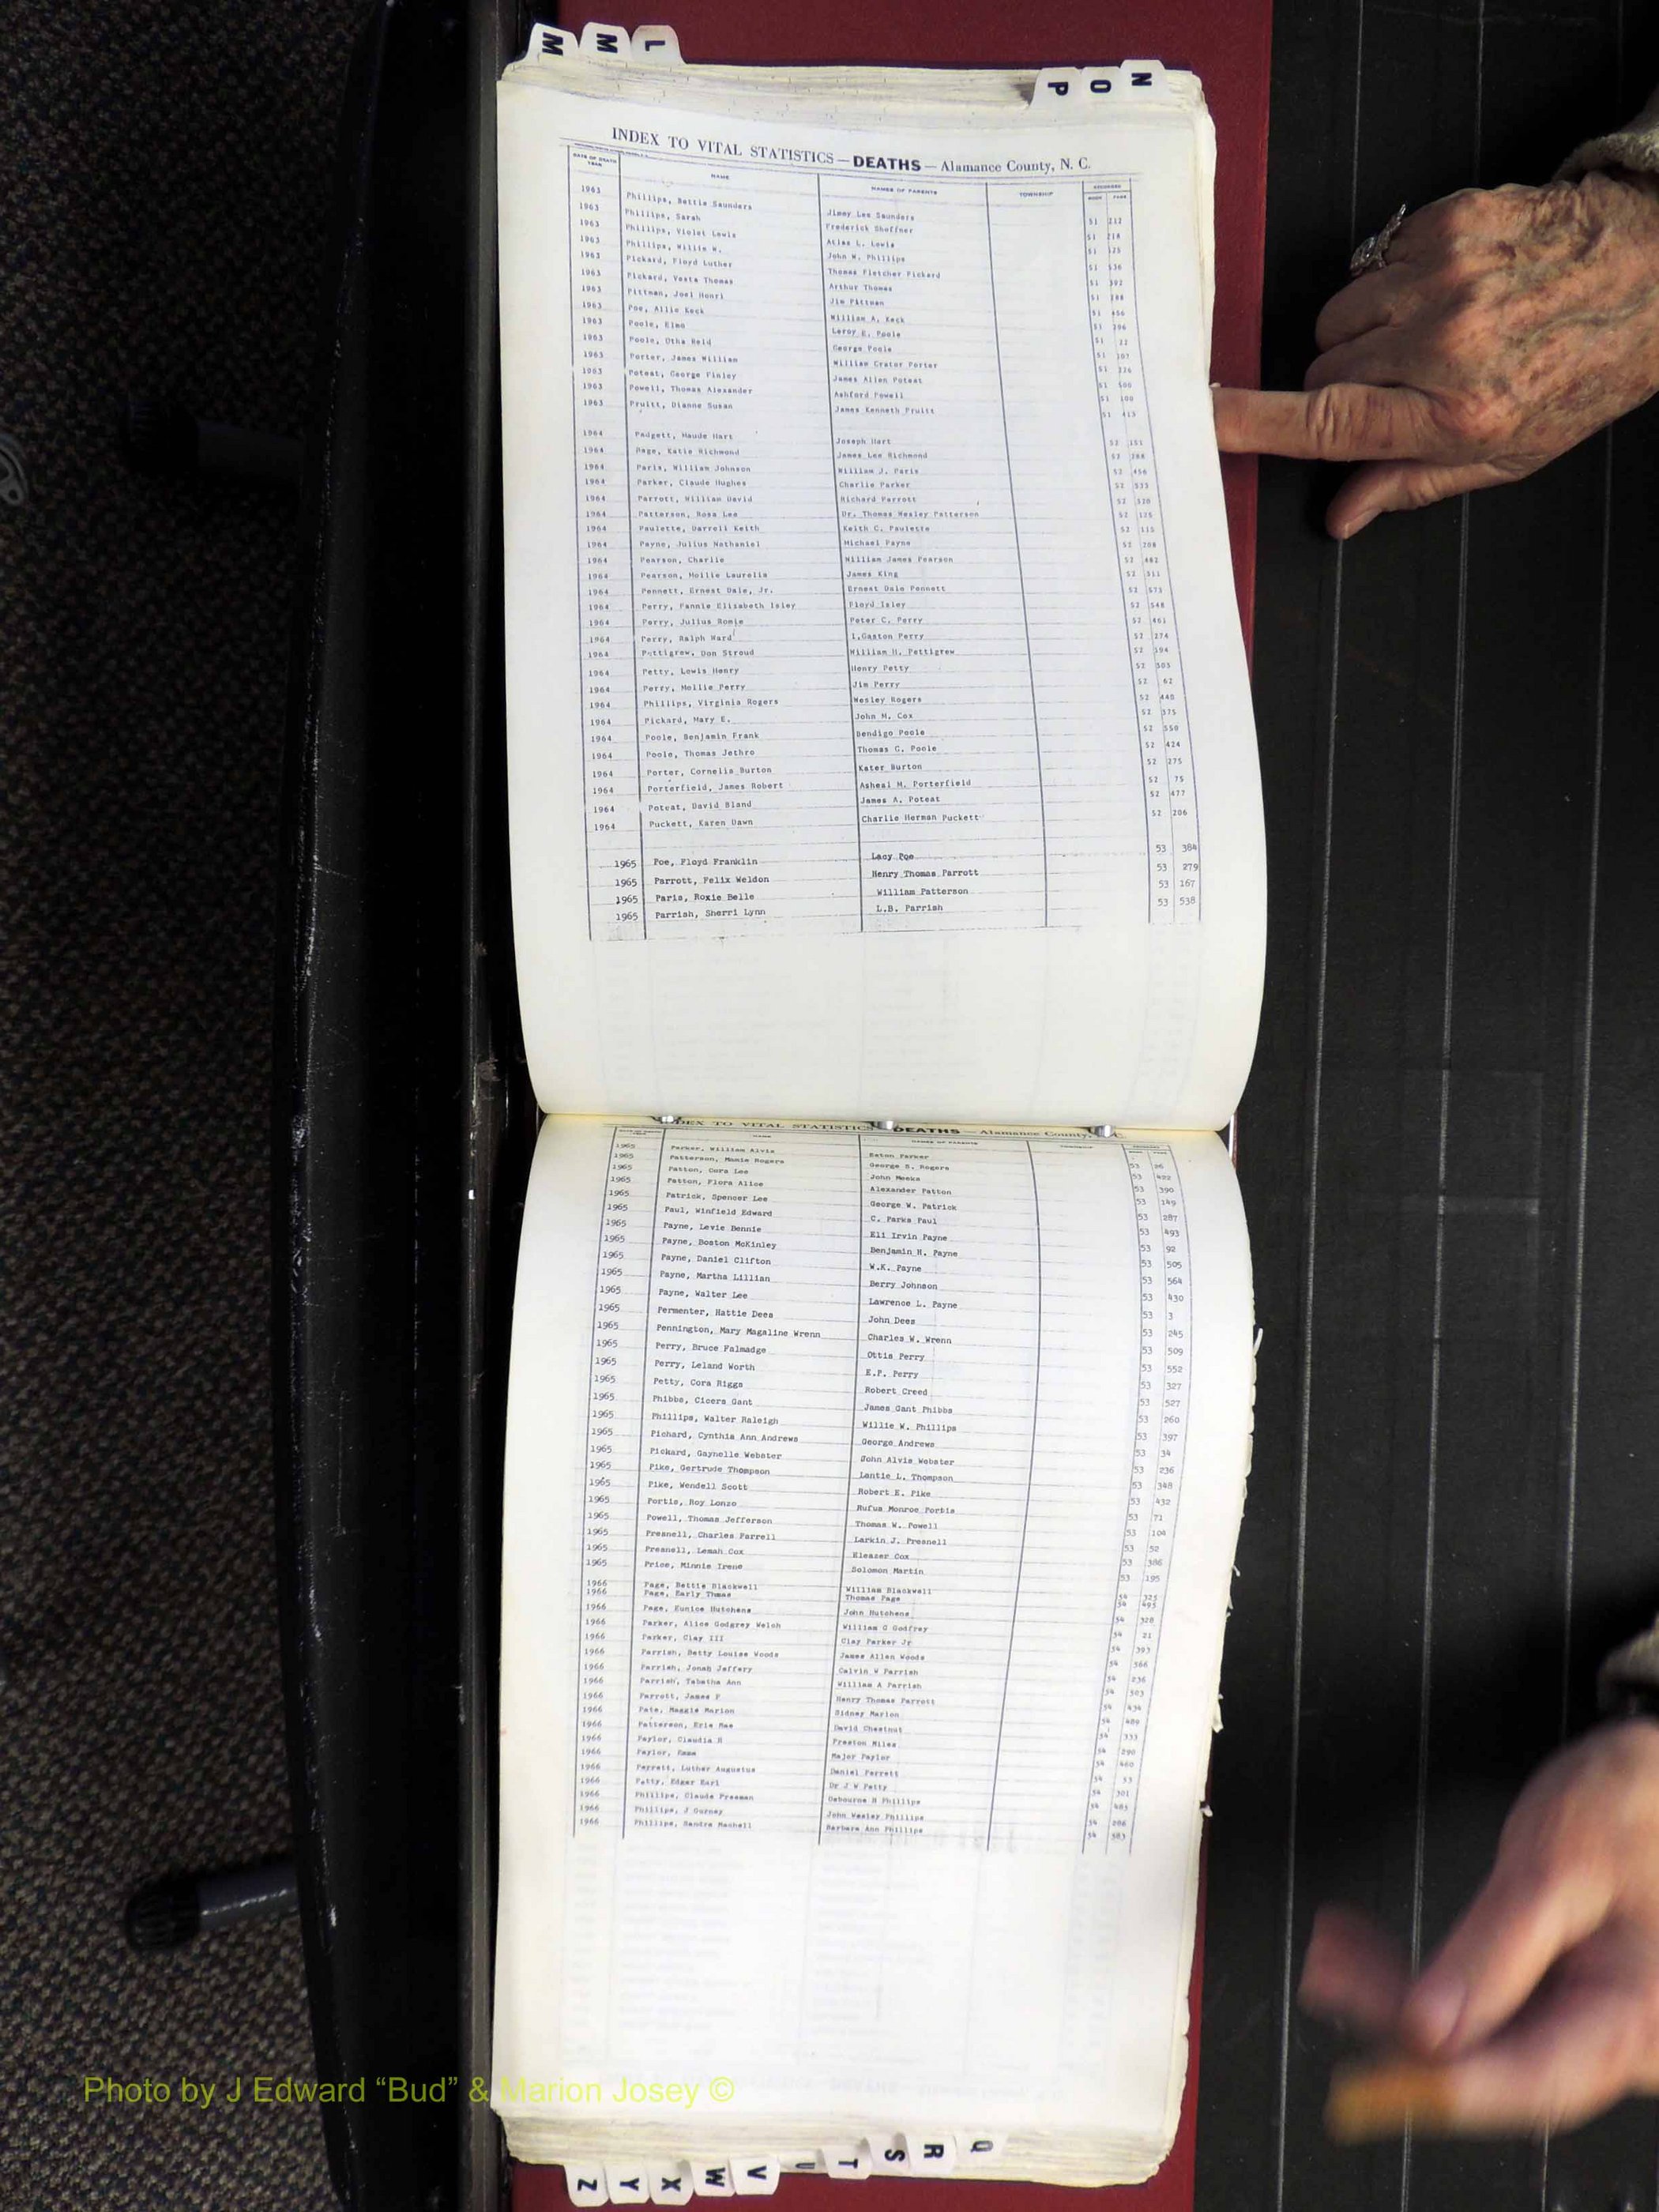 M M L
P O N
INDEX TO VITAL STATISTICS — DEATHS — Alamance County, N. C.
DATE OF DEATH YEAR NAME NAMES OF PARENTS TOWNSHIP RECORDED BOOK PAGE
1963 Phillips, Bettie Saunders Jimmy Lee Saunders 51 212
1963 Phillips, Sarah Frederick Shoffner 51 218
1963 Phillips, Violet Lewis Atlas L. Lewis 51 525
1963 Phillips, Willie W. John W. Phillips 51 536
1963 Pickard, Floyd Luther Thomas Fletcher Pickard 51 392
1963 Pickard, Vesta Thomas Arthur Thomas 51
1963 Pittman, Joel Henri Jim Pittman 51 456
1963 Poe, Allie Keck William A. Keck 51 206
1963 Poole, Elmo Leroy E. Poole 51 22
1963 Poole, Otha Reid George Poole 51 107
1963 Porter, James William William Crator Porter 51 226
1963 Poteat, George Finley James Allen Poteat 51 500
1963 Powell, Thomas Alexander Ashford Powell 51 100
1963 Pruitt, Dianne Susan James Kenneth Pruitt 51 415
1964 Padgett, Maude Hart Joseph Hart 52 151
1964 Page, Katie Richmond James Lee Richmond 52 288
1964 Paris, William Johnson William J. Paris 52 456
1964 Parker, Claude Hughes Charlie Parker 52 535
1964 Parrott, William David Richard Parrott 52 520
1964 Patterson, Rosa Lee Dr. Thomas Wesley Patterson 52 125
1964 Paulette, Darrell Keith Keith C. Paulette 52 115
1964 Payne, Julius Nathaniel Michael Payne 52 208
1964 Pearson, Charlie William James Pearson 52 482
1964 Pearson, Mollie Laurelia James King 52 511
1964 Pennett, Ernest Dale, Jr. Ernest Dale Pennett 52 573
1964 Perry, Fannie Elizabeth Isley Floyd Isley 52 548
1964 Perry, Julius Romie Peter C. Perry 52 461
1964 Perry, Ralph Ward I. Gaston Perry 52 274
1964 Pettigrew, Don Stroud William H. Pettigrew 52 394
1964 Petty, Lewis Henry Henry Petty 52 503
1964 Perry, Mollie Perry Jim Perry 52 62
1964 Phillips, Virginia Rogers Wesley Rogers 52 440
1964 Pickard, Mary E. John M. Cox 52 375
1964 Poole, Benjamin Frank Bendigo Poole 52 550
1964 Poole, Thomas Jethro Thomas G. Poole 52 424
1964 Porter, Cornelia Burton Kater Burton 52 275
1964 Porterfield, James Robert Asheal M. Porterfield 52 75
1964 Poteat, David Bland James A. Poteat 52 477
1964 Puckett, Karen Dawn Charlie Herman Puckett 52 206
1965 Poe, Floyd Franklin Lacy Poe 53 384
1965 Parrott, Felix Weldon Henry Thomas Parrott 53 279
1965 Paris, Roxie Belle William Patterson 53 167
1965 Parrish, Sherri Lynn L.B. Parrish 53 538
INDEX TO VITAL STATISTICS DEATHS — Alamance County, C.
1965 Parker, William Alvis Eaton Parker 53 26
1965 Patterson, Mamie Rogers George S. Rogers 53 492
1965 Patton, Cora Lee John Meeks 53 390
1965 Patton, Flora Alice Alexander Patton 53 149
1965 Patrick, Spencer Lee George W. Patrick 53 287
1965 Paul, Winfield Edward C. Parks Paul 53 493
1965 Payne, Levie Bennie Eli Irvin Payne 53 92
1965 Payne, Boston McKinley Benjamin H. Payne 53 505
1965 Payne, Daniel Clifton W.K. Payne 53 564
1965 Payne, Martha Lillian Berry Johnson 53 430
1965 Payne, Walter Lee Lawrence L. Payne 53 3
1965 Permenter, Hattie Dees John Dees 53 245
1965 Pennington, Mary Magaline Wrenn Charles W. Wrenn 53 509
1965 Perry, Bruce Falmadge Ottis Perry 53 552
1965 Perry, Leland Worth E.P. Perry 53 327
1965 Petty, Cora Riggs Robert Creed 53 527
1965 Phibbs, Cicero Gant James Gant Phibbs 53 260
1965 Phillips, Walter Raleigh Willie W. Phillips 53 397
1965 Pichard, Cynthia Ann Andrews George Andrews 53 34
1965 Pickard, Gaynelle Webster John Alvis Webster 53 236
1965 Pike, Gertrude Thompson Lantie L. Thompson 53 348
1965 Pike, Wendell Scott Robert E. Pike 53 432
1965 Portis, Roy Lonzo Rufus Monroe Portis 53 71
1965 Powell, Thomas Jefferson Thomas W. Powell 53 104
1965 Presnell, Charles Farrell Larkin J. Presnell 53 52
1965 Presnell, Lemah Cox Eleazer Cox 53 386
1965 Price, Minnie Irene Solomon Martin 53 195
1966 Page, Bettie Blackwell William Blackwell 54 325
1966 Page, Early Thmas Thomas Page 54 495
1966 Page, Eunice Hutchens John Hutchens 54 328
1966 Parker, Alice Godgrey Welch William G Godfrey 54 21
1966 Parker, Clay III Clay Parker Jr 54 393
1966 Parrish, Betty Louise Woods James Allen Woods 54 566
1966 Parrish, Jonah Jeffery Calvin W Parrish 54 236
1966 Parrish, Tabatha Ann William A Parrish 54 503
1966 Parrott, James F Henry Thomas Parrott 54 434
1966 Pate, Maggie Marion Sidney Marion 54 489
1966 Patterson, Erie Mae David Chestnut 54 333
1966 Paylor, Claudia H Preston Miles 54 290
1966 Paylor, Emma Major Paylor 54 460
1966 Perrett, Luther Augustus Daniel Perrett 54 53
1966 Petty, Edgar Earl Dr J W Petty 54 301
1966 Phillips, Claude Freeman Osbourne H Phillips 54 485
1966 Phillips, J Gurney John Wesley Phillips 54 286
1966 Phillips, Sandra Machell Barbara Ann Phillips 54 583
Photo by J Edward “Bud” & Marion Josey ©
Z Y X W V U T S R Q